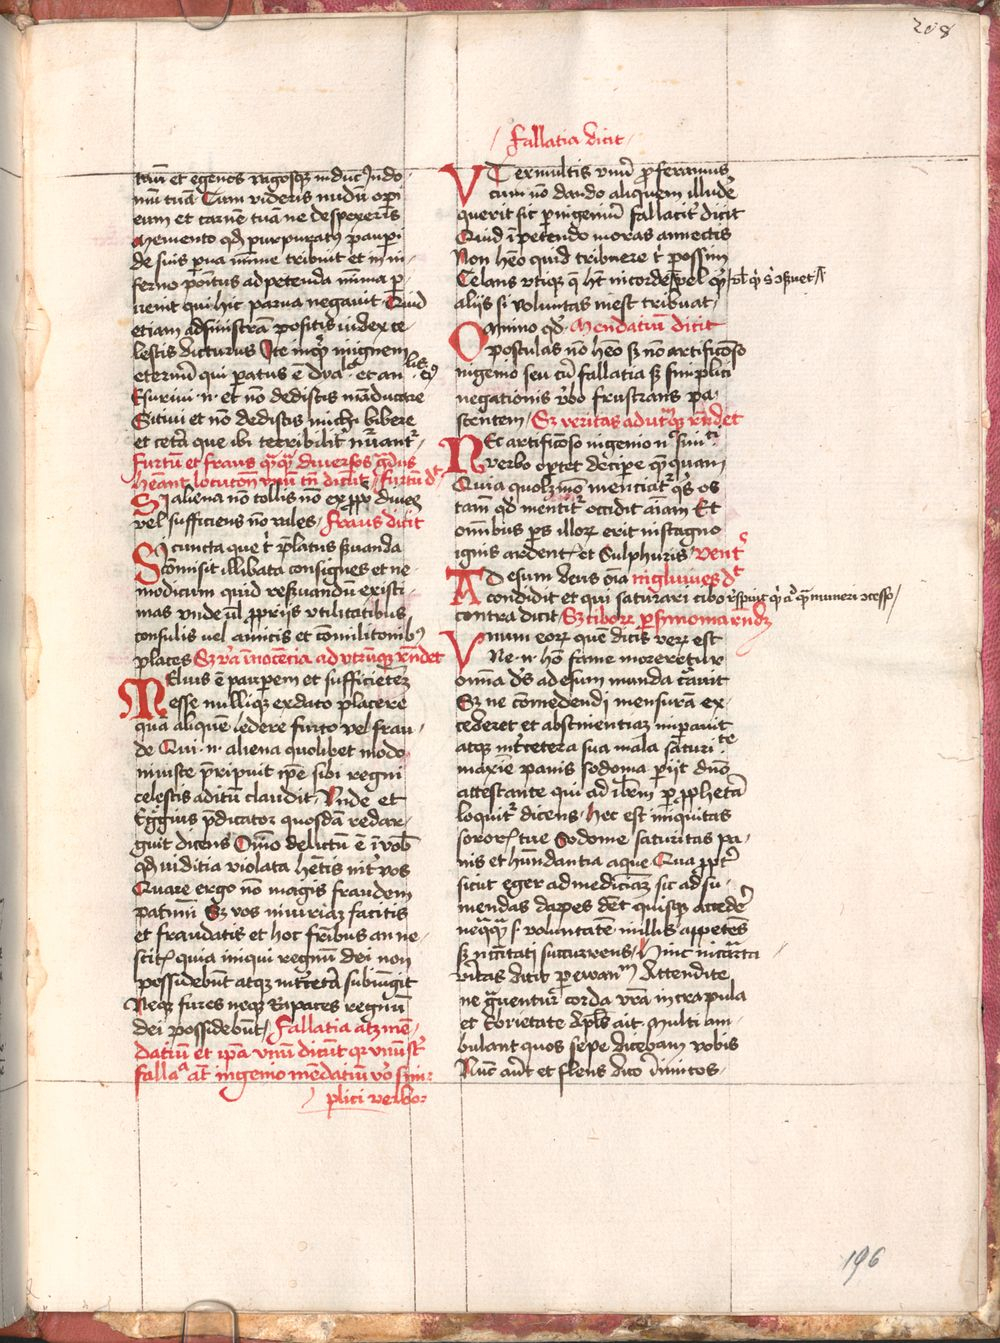 208
Fallatia dicit
tuum et egenos vagosque induc in do
mum tuam Cum videris nudum operi
eum et carnem tuam ne despexeris
Memento qd purpuratus pauperi
de suis parva minime tribuit et in in
ferno positus ad petenda minima per
venit qui hic parva negavit Quid
etiam ad sinistram positis iudex ce
lestis dicturus Ite inquit in ignem
eternum qui paratus est dyabolo et angelis eius
Esurivi n et non dedistis manducare
Sitivi et non dedistis michi bibere
et cetera que ibi terribiliter narrantur
Furtum et fraus quamquam diversos gradus
habeant locutionem unam tamen dicunt furtum dicit
Si aliena non tollis non ex proprio dives
vel sufficiens non vales Fraus dicit
Si cuncta que tibi prelatus servanda
commisit illibata consignes et ne
modicum quid reservandum existi
mas unde vel propriis utilitatibus
consulis vel amicis et comilitonibus
places Sed vera innocencia ad utrumque respondet
Melius est pauperem et sufficientem
esse nullique ex dato placere
quam aliquem ledere furto vel frau
de Qui n aliena quolibet modo
iniuste preripuit ipse sibi regni
celestis aditum claudit Unde et
Egregius predicator quosdam redar
guit dicens Omnino delictum est in vobis
qd iuditia violata habetis inter vos
Quare ergo no magis fraudem
patimini Sed vos iniuriam facitis
et fraudatis et hoc fratribus an ne
scitis quia iniqui regnum dei non
possidebunt atque inter cetera subiungit
Neque fures neque rapaces regnum
dei possidebunt Fallatia atque men
datium et ipsa unum dicunt que unum scilicet
fallatia autem ingenio mendatium vero sim
plici verbo
UT ex multis unum proferamus
cum non dando aliquem illudere
querit sic per ingenium fallaciter dicit
Quid in petendo moras annectis
Non habeo quid tribuere tibi possim
Celans utique quod habet in corde vel quod
vel quod sibi conservet
aliis si voluntas inest tribuat
Omnino qd Mendatium dicit
postulas non habeo sed non artificoso
ingenio seu cum fallatia sed simplici
negationis verbo frustrans pa
scentem Sed veritas ad utrumque respondet
Nec artificoso ingenio nec simplici
verbo oportet decipere quemquam
Quia quolibet modo mentiatur quis os
tamen qd mentitur occidit animam Et
omnibus pars illorum erit in stagno
ignis ardentis et Sulphuris Ventris
Ad esum deus omnia ingluvies dicit
condidit et qui saturari cibo respuit quid aliud quam muneri concesso
contradicit Sed tibor parsimonia respondet
Unum eorum que dicis verum est
Ne n homo fame moreretur
omnia deus ad esum munda creavit
Sed ne comedendi mensuram ex
cederet et abstinentiam imperavit
atque inter cetera sua mala saturitate
maxime panis sodoma periit domino
attestante qui ad ierusalem per prophetam
loquitur dicens Hec est iniquitas
sororis tue Sodome saturitas pa
nis et habundantia aque Qua propter
sicut eger ad medicinam sic ad su
mendas dapes debet quisque accedere
nequaquam s voluntatem in illis appetens
sed necessitati succurrens Hinc incarnata
veritas dicit per ewangelium Attendite
ne graventur corda vestra in crapula
et Ebrietate Apostolus ait Multi am
bulant quos sepe dicebam vobis
Nunc autem et flens dico inimicos
196